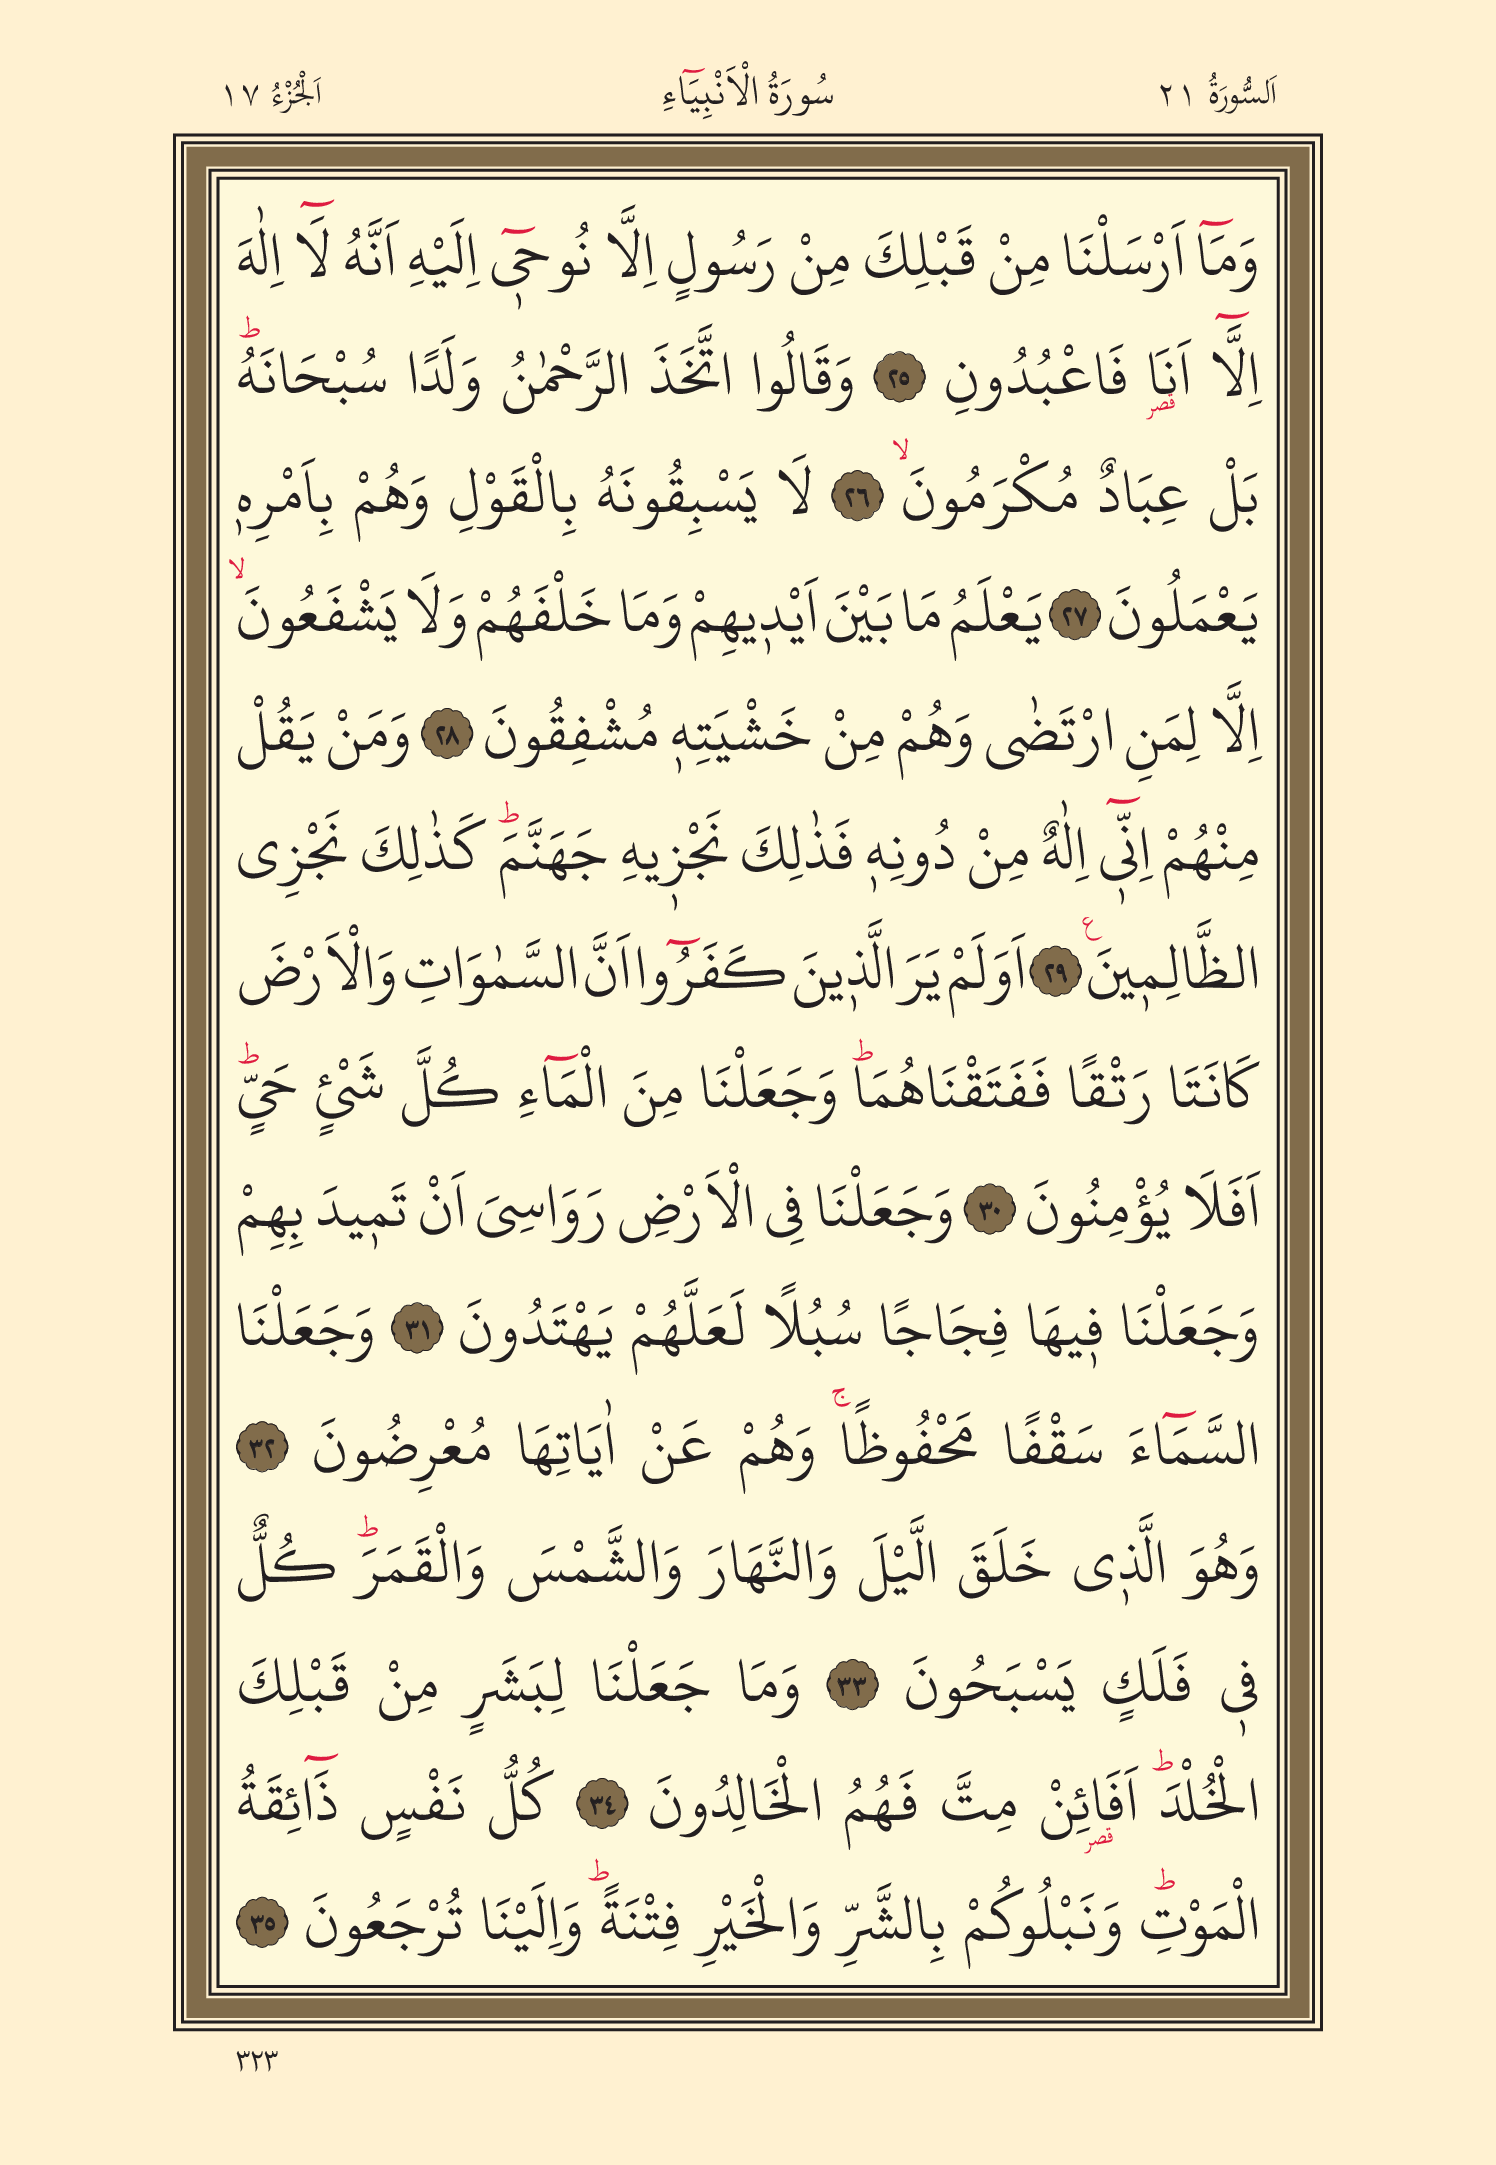 اَلسُّورَةُ ٢١ سُورَةُ الْاَنْبِيَٓاءِ اَلْجُزْءُ ١٧
وَمَٓا اَرْسَلْنَا مِنْ قَبْلِكَ مِنْ رَسُولٍ اِلَّا نُوحٖٓى اِلَيْهِ اَنَّهُ لَٓا اِلٰهَ
اِلَّٓا اَنَا۬ قصر فَاعْبُدُونِ ٢٥ وَقَالُوا اتَّخَذَ الرَّحْمٰنُ وَلَدًا سُبْحَانَهُ ط
بَلْ عِبَادٌ مُكْرَمُونَ لا ٢٦ لَا يَسْبِقُونَهُ بِالْقَوْلِ وَهُمْ بِاَمْرِهٖ
يَعْمَلُونَ ٢٧ يَعْلَمُ مَا بَيْنَ اَيْدٖيهِمْ وَمَا خَلْفَهُمْ وَلَا يَشْفَعُونَ لا
اِلَّا لِمَنِ ارْتَضٰى وَهُمْ مِنْ خَشْيَتِهٖ مُشْفِقُونَ ٢٨ وَمَنْ يَقُلْ
مِنْهُمْ اِنّٖٓى اِلٰهٌ مِنْ دُونِهٖ فَذٰلِكَ نَجْزٖيهِ جَهَنَّمَ ط كَذٰلِكَ نَجْزِى
الظَّالِمٖينَ ع ٢٩ اَوَلَمْ يَرَ الَّذٖينَ كَفَرُٓوا اَنَّ السَّمٰوَاتِ وَالْاَرْضَ
كَانَتَا رَتْقًا فَفَتَقْنَاهُمَا ط وَجَعَلْنَا مِنَ الْمَٓاءِ كُلَّ شَيْئٍ حَيٍّ ط
اَفَلَا يُؤْمِنُونَ ٣٠ وَجَعَلْنَا فِى الْاَرْضِ رَوَاسِىَ اَنْ تَمٖيدَ بِهِمْ
وَجَعَلْنَا فٖيهَا فِجَاجًا سُبُلًا لَعَلَّهُمْ يَهْتَدُونَ ٣١ وَجَعَلْنَا
السَّمَٓاءَ سَقْفًا مَحْفُوظًا ج وَهُمْ عَنْ اٰيَاتِهَا مُعْرِضُونَ ٣٢
وَهُوَ الَّذٖى خَلَقَ الَّيْلَ وَالنَّهَارَ وَالشَّمْسَ وَالْقَمَرَ ط كُلٌّ
فٖى فَلَكٍ يَسْبَحُونَ ٣٣ وَمَا جَعَلْنَا لِبَشَرٍ مِنْ قَبْلِكَ
الْخُلْدَ ط اَفَائِنْ قصر مِتَّ فَهُمُ الْخَالِدُونَ ٣٤ كُلُّ نَفْسٍ ذَٓائِقَةُ
الْمَوْتِ ط وَنَبْلُوكُمْ بِالشَّرِّ وَالْخَيْرِ فِتْنَةً ط وَاِلَيْنَا تُرْجَعُونَ ٣٥
٣٢٣